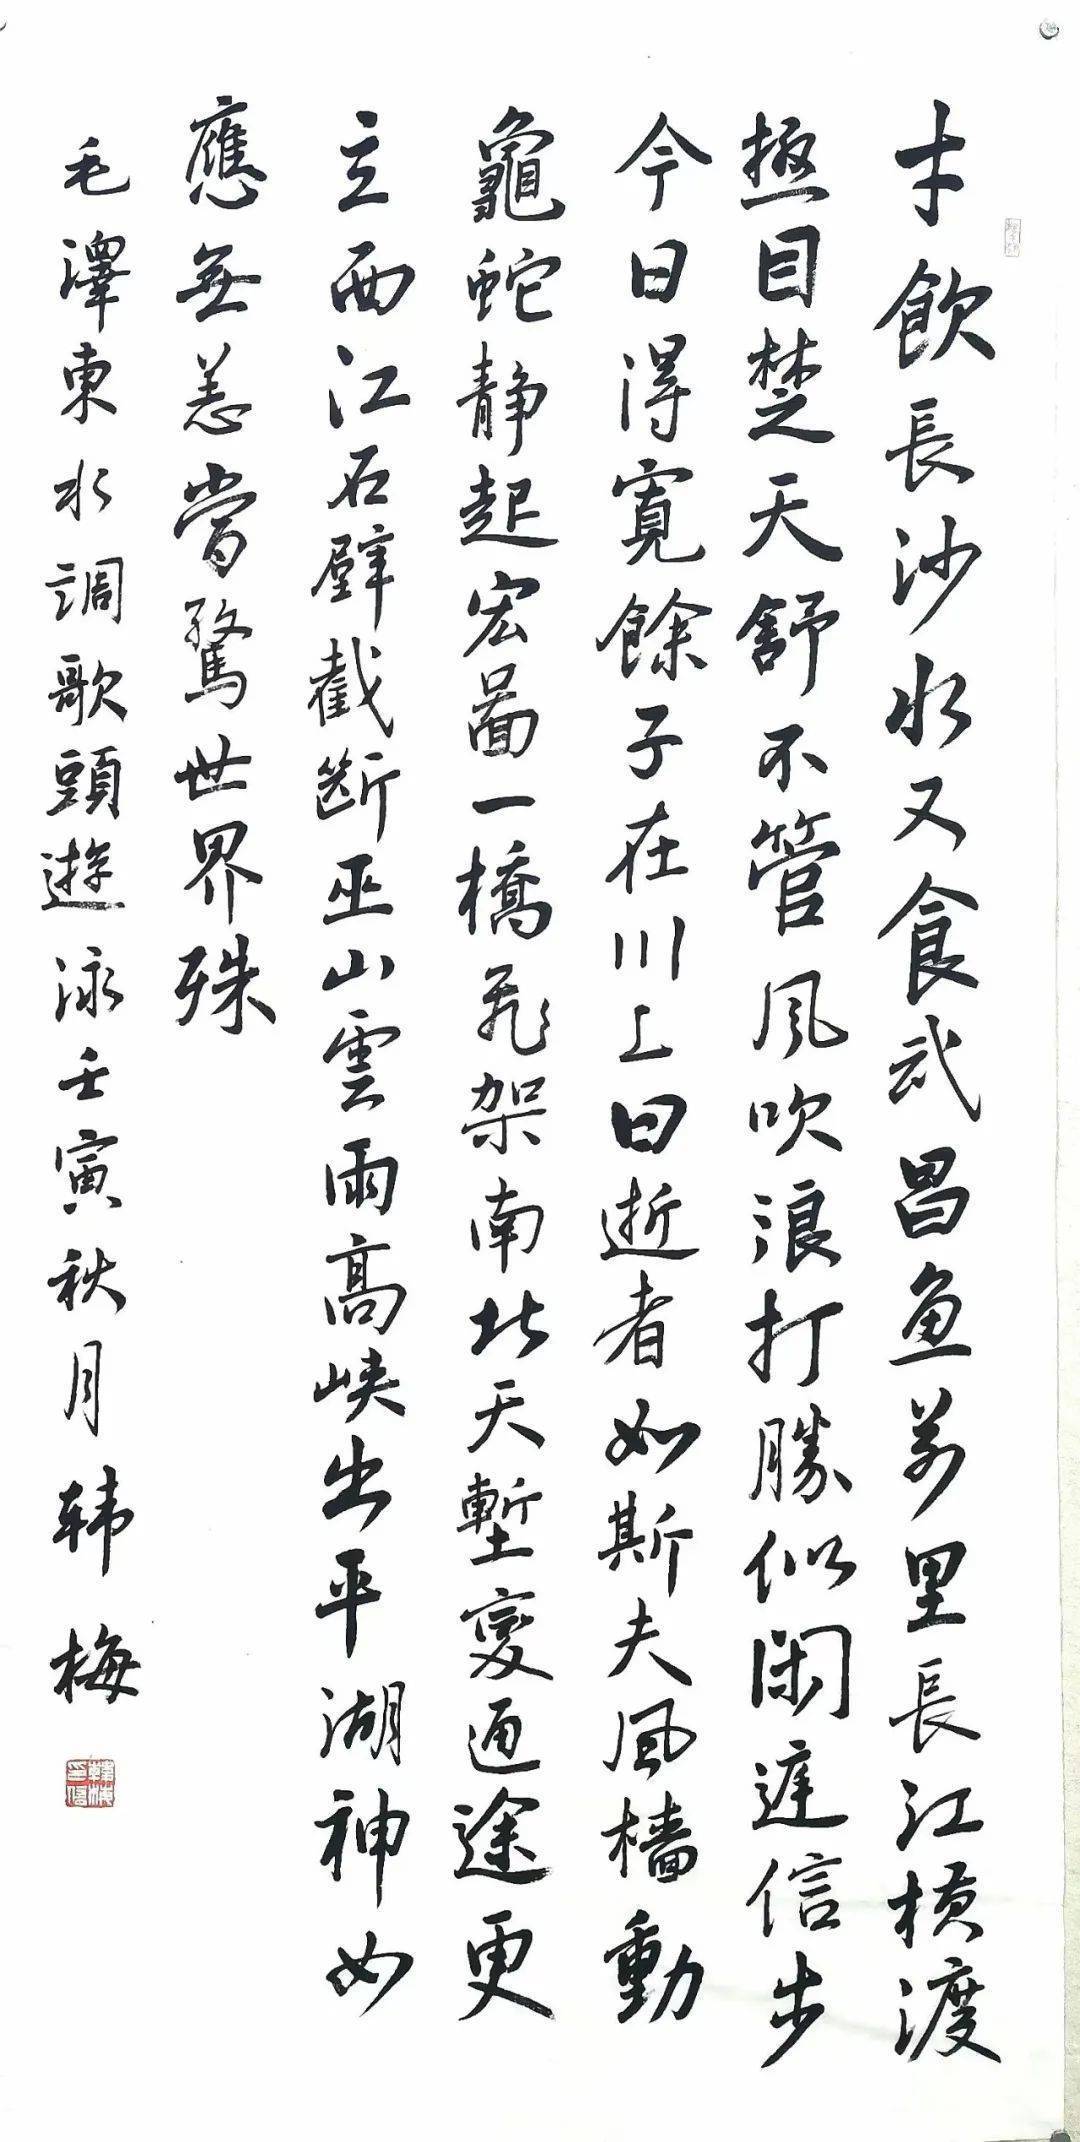 才飲長沙水又食武昌魚萬里長江橫渡
極目楚天舒不管風吹浪打勝似閑庭信步
今日得寬餘子在川上曰逝者如斯夫風檣動
龜蛇静起宏圖一橋飛架南北天塹變通途更
立西江石壁截斷巫山雲雨高峽出平湖神女
應無恙當驚世界殊
毛澤東水調歌頭遊泳壬寅秋月韩梅